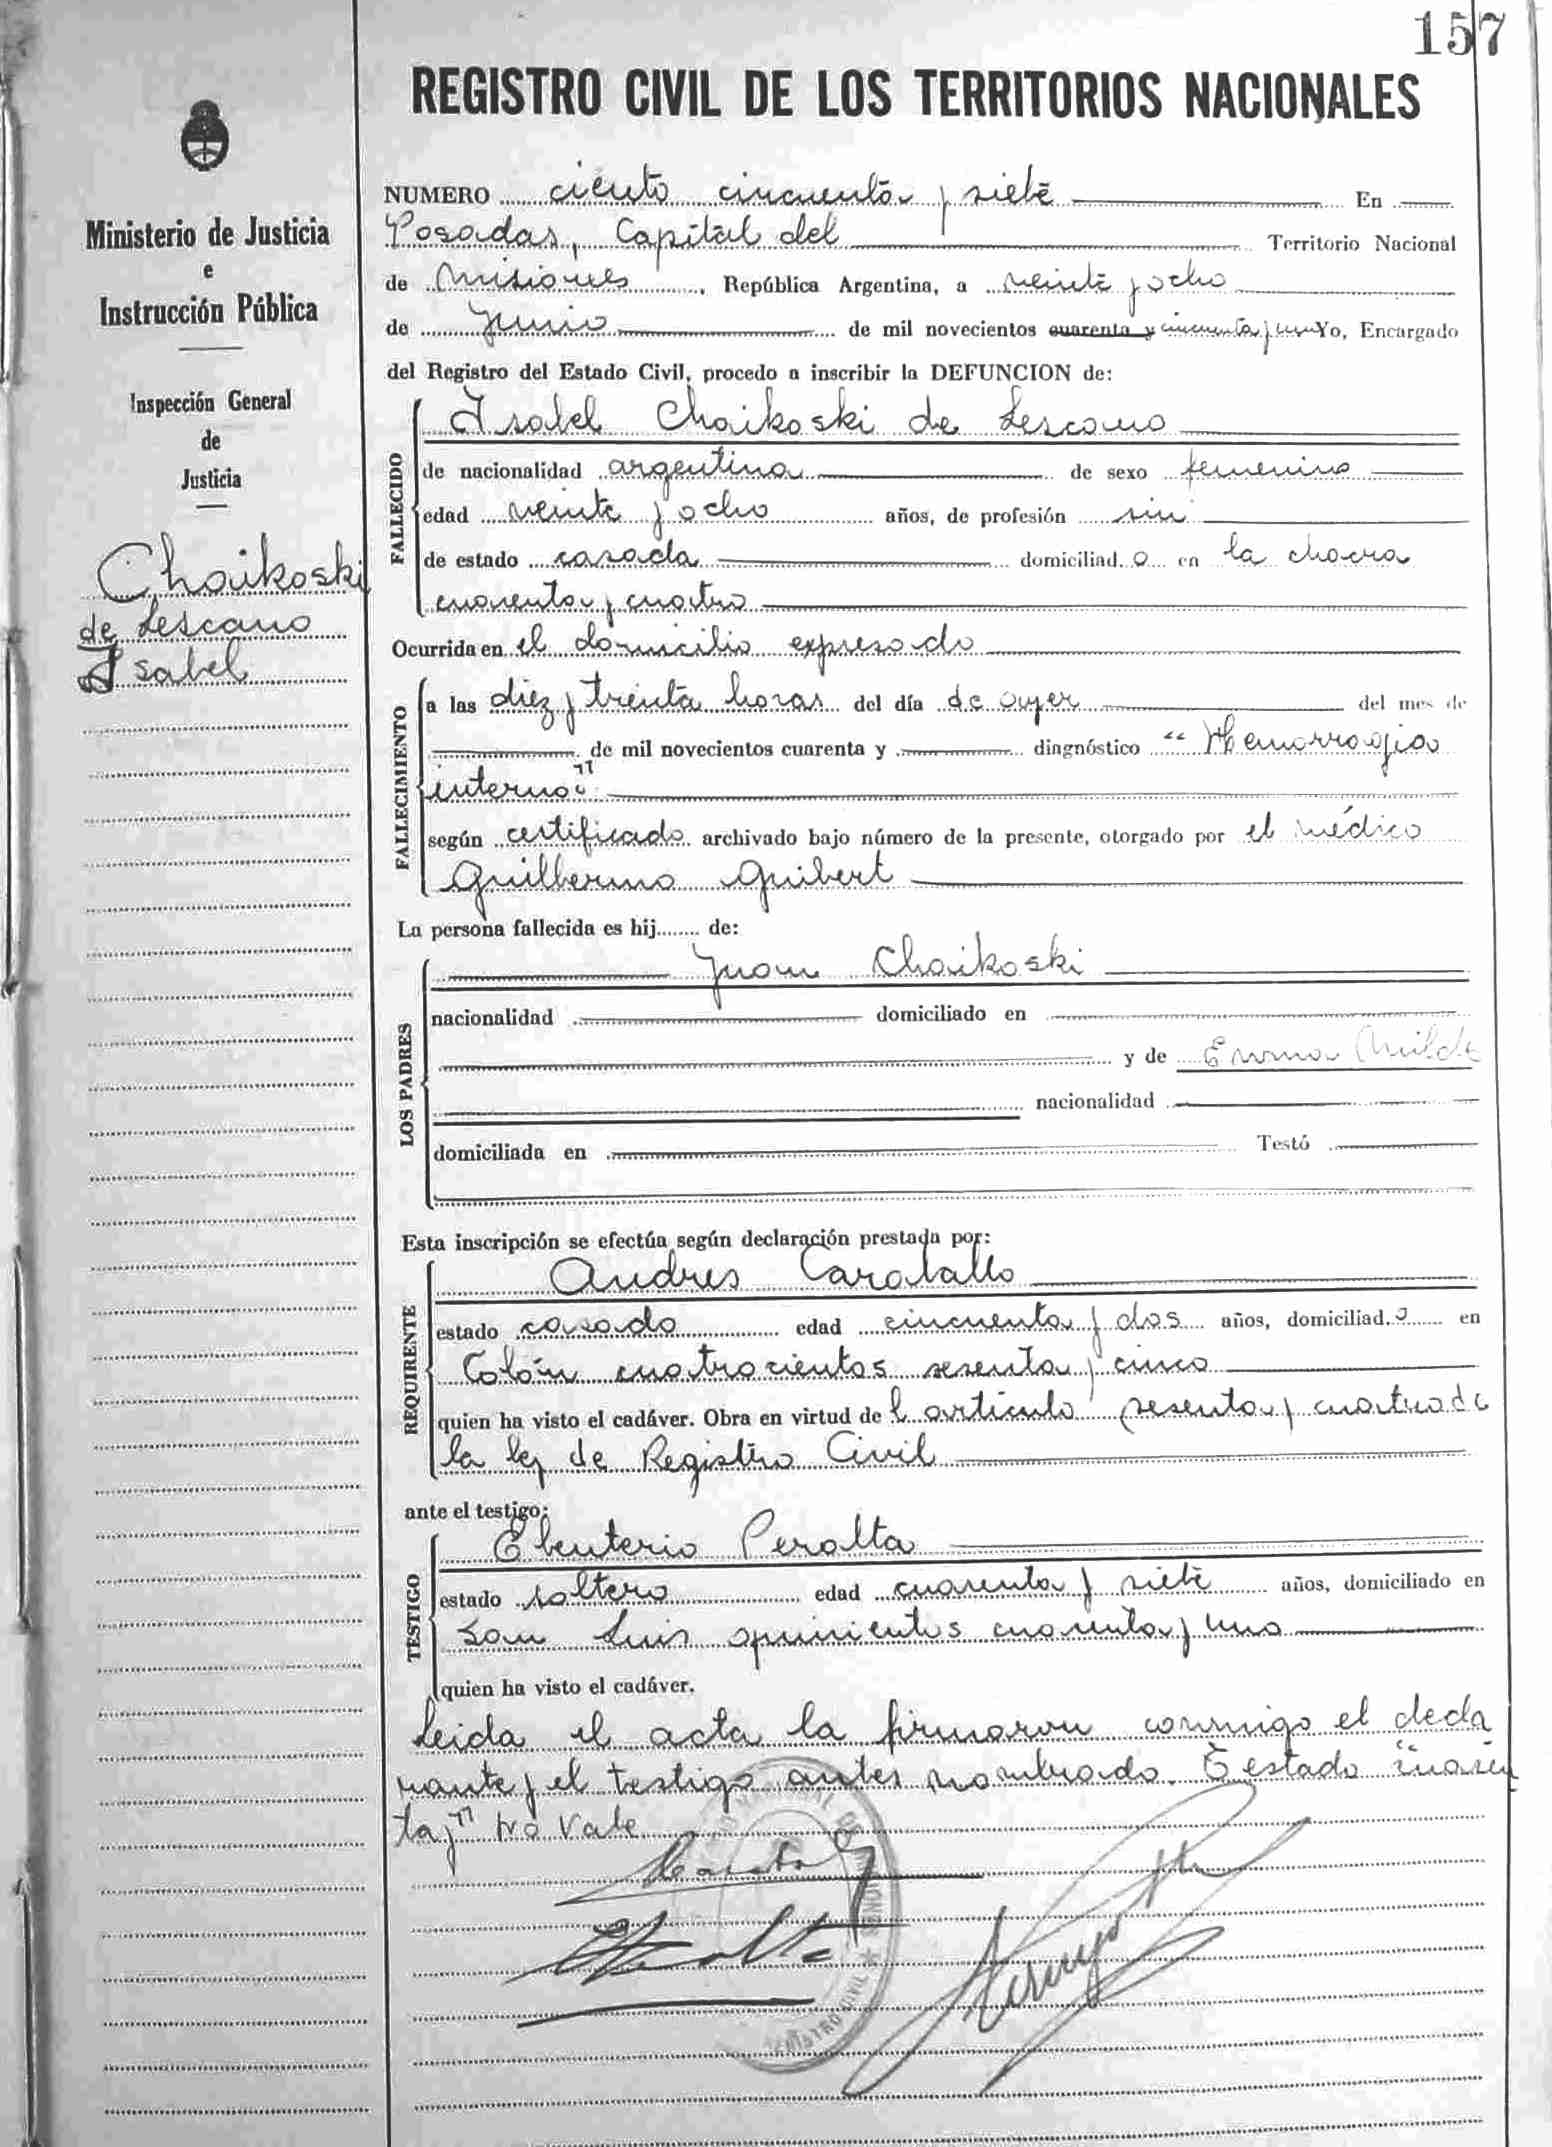 157
REGISTRO CIVIL DE LOS TERRITORIOS NACIONALES
Ministerio de Justicia
e
Instrucción Pública
Inspección General
de
Justicia
Choikoski
de Lescano
Isabel
NUMERO ciento cincuenta y siete En
Posadas, Capital del Territorio Nacional
de Misiones, República Argentina, a veinte y ocho
de Junio de mil novecientos cuarenta y cincuenta y uno Yo, Encargado
del Registro del Estado Civil, procedo a inscribir la DEFUNCION de:
FALLECIDO
Isabel Choikoski de Lescano
de nacionalidad argentina de sexo femenino
edad veinte y ocho años, de profesión sin
de estado casada domiciliad o en la chacra
cuarenta y cuatro
Ocurrida en el domicilio expresado
FALLECIMIENTO
a las diez y treinta horas del día de ayer del mes de
de mil novecientos cuarenta y diagnóstico "Hemorragia
interna"
según certificado archivado bajo número de la presente, otorgado por el médico
Guillermo Guibert
La persona fallecida es hij de:
LOS PADRES
Juan Choikoski
nacionalidad domiciliado en
y de Emma Milde
nacionalidad
domiciliada en Testó
Esta inscripción se efectúa según declaración prestada por:
REQUIRENTE
Andres Caraballo
estado casado edad cincuenta y dos años, domiciliad o en
Colón cuatrocientos sesenta y cinco
quien ha visto el cadáver. Obra en virtud de l articulo sesenta y cuatro de
la ley de Registro Civil
ante el testigo:
TESTIGO
Eleuterio Peralta
estado soltero edad cuarenta y siete años, domiciliado en
San Luis quinientos cuarenta y uno
quien ha visto el cadáver.
Leida el acta la firmaron conmigo el decla
rante y el testigo antes nombrado. Testado "cuaren
ta y" no vale
REGISTRO CIVIL